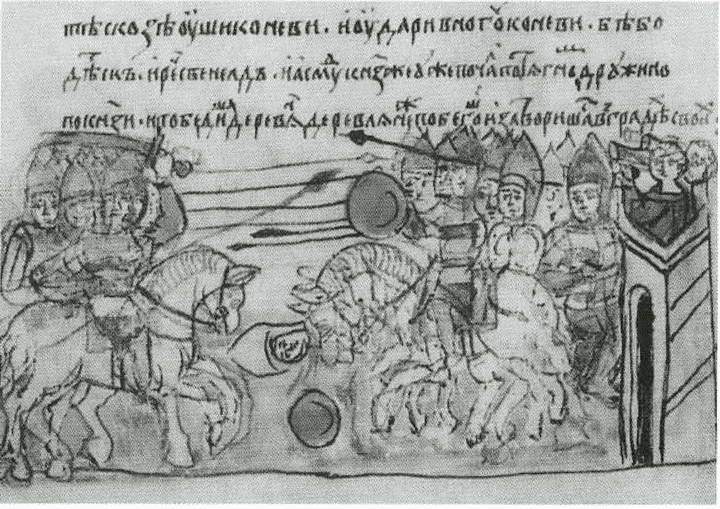 тѣ скозѣ оуши коневи · и оудари в ногы коневи · бѣ бо
дѣтескъ · и ре свенелдъ · и асмуⷣ кнѧзь оуже почалъ потѧгнѣмъ дружино
по кнѧзи · и победиша деревлѧ деревлѧне же побегоша и затворишаⷭ в градѣ свои ·